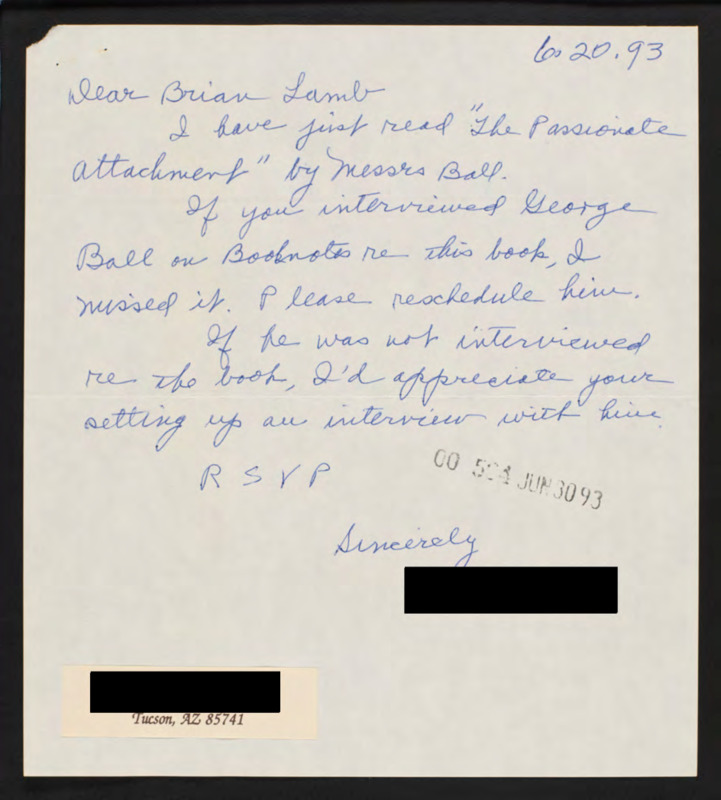 6.20.93
Dear Brian Lamb
I have just read "The Passionate
Attachment" by Messrs Ball.
If you interviewed George
Ball on Booknotes re this book, I
missed it. Please reschedule him.
If he was not interviewed
re the book, I'd appreciate your
setting up an interview with him.
R S V P
00 JUN 30 93
Sincerely
Tucson, AZ 85741